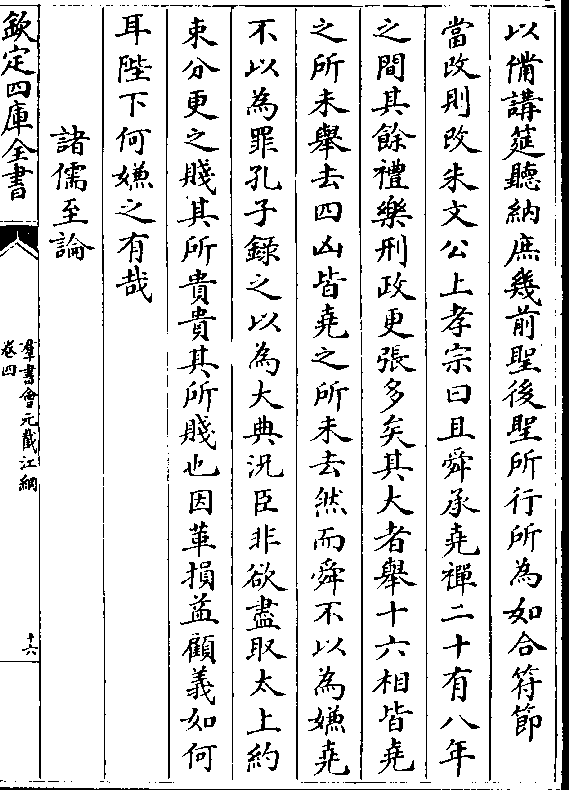 以備講筵聽納庶幾前聖後聖所行所為如合符節
當改則改朱文公上孝宗曰且舜承堯禪二十有八年
之間其餘禮樂刑政更張多矣其大者舉十六相皆堯
之所未舉去四凶皆堯之所未去然而舜不以為嫌堯
不以為罪孔子錄之以為大典況臣非欲盡取太上約
束分更之賤其所貴貴其所賤也因革損益顧義如何
耳陛下何嫌之有哉
諸儒至論
欽定四庫全書
羣書會元截江網
卷四
十六